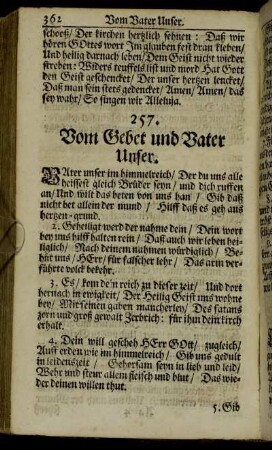 362 Vom Vater Unser.
schooß/ Der kirchen herzlich sehnen: Daß wir
hören GOttes wort Im glauben fest dran kleben/
Und heilig darnach leben/ Dem Geist nicht wieder
streben: Widers teuffels list und mord Hat Gott
den Geist geschencket/ Der unser herzen lencket/
Daß man sein stets gedencket/ Amen/ Amen/ das
sey wahr/ So singen wir Alleluja.
257.
Vom Gebet und Vater
Unser.
VAter unser im himmelreich/ Der du uns alle
heissest gleich Brüder seyn/ und dich ruffen
an/ Und wilt das beten von uns han/ Gib daß
nicht bet allein der mund/ Hilff daß es geh aus
herzen-grund.
2. Geheiligt werd der nahme dein/ Dein wort
bey uns hilff halten rein/ Daß auch wir leben hei-
liglich/ Nach deinem nahmen würdiglich/ Be-
hüt uns/ HErr/ für falscher lehr/ Das arm ver-
führte volck bekehr.
3. Es/ kom de'n reich zu dieser zeit/ Und dort
hernach in ewigkeit/ Der Heilig Geist uns wohne
bey/ Mit seinen gaben mancherley/ Des satans
zorn und groß gewalt Zerbrich: für ihm dein kirch
erhalt.
4. Dein will gescheh HErr GOtt/ zugleich/
Auff erden wie im himmelreich/ Gib uns gedult
in leidenszeit/ Gehorsam seyn in lieb und leid/
Wehr und steur allem fleisch und blut/ Das wie-
der deinen willen thut.
5. Gib